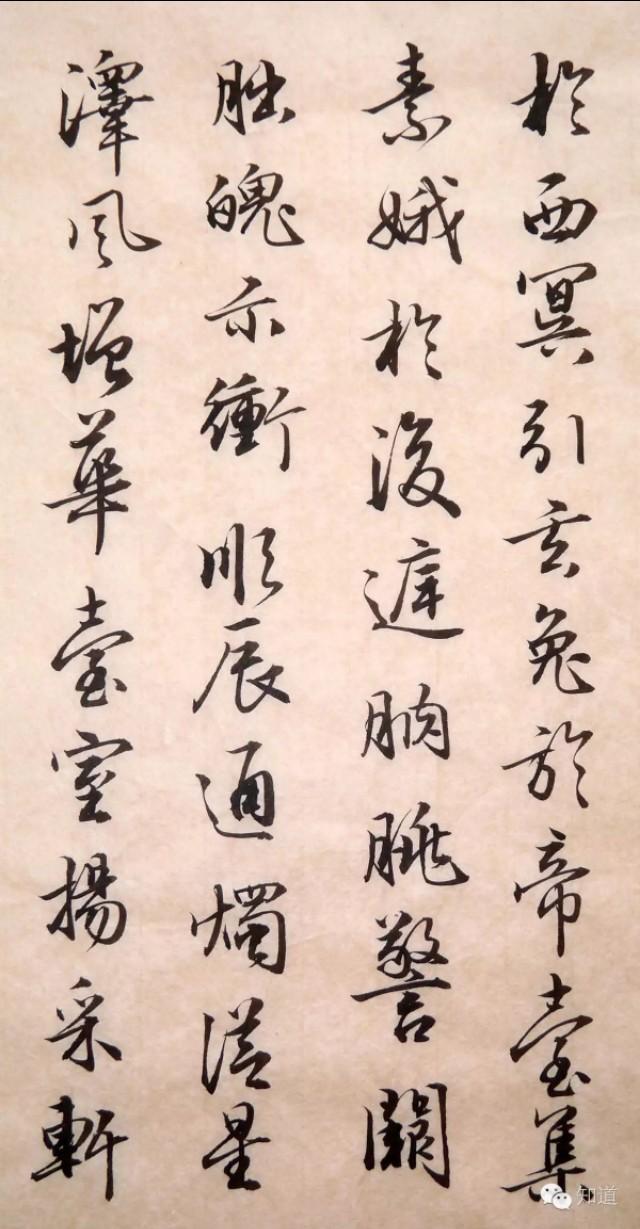 於西冥引玄兔於帝臺集
素娥於後庭朒朓警闕
朏魄示衝順辰通燭從星
澤風增華臺室揚采軒
知道